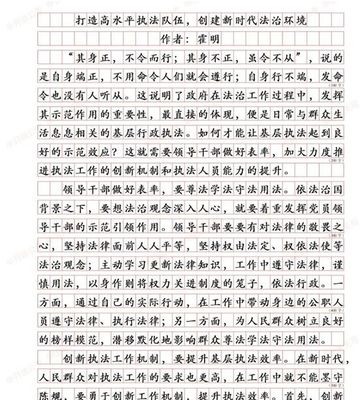 打造高水平执法队伍，创建新时代法治环境
作者：霍明
“其身正，不令而行；其身不正，虽令不从”，说的
是自身端正，不用命令人们就会遵行；自身行不端，发命
令也没有人听从。这说明了政府在法治工作过程中，发挥
其示范作用的重要性，最直接的体现，便是日常与群众生
活息息相关的基层行政执法。如何才能让基层执法起到良
好的示范效应？这就需要领导干部做好表率，加大力度推
进执法工作的创新机制和执法人员能力的提升。
领导干部做好表率，要尊法学法守法用法。依法治国
背景之下，要想法治观念深入人心，就要着重发挥党员领
导干部的示范引领作用。领导干部要有对法律的敬畏之
心，坚持法律面前人人平等，坚持权由法定、权依法使等
法治观念；主动学习更新法律知识，工作中遵守法律，谨
慎用法，以身作则将权力关进制度的笼子，依法行政。一
方面，通过自己的实际行动，在工作中带动身边的公职人
员遵守法律、执行法律；另一方面，为人民群众树立良好
的榜样模范，潜移默化地影响群众尊法学法守法用法。
创新执法工作机制，要提升基层执法效率。在新时代，
人民群众对执法工作的要求也更高，在工作中就不能墨守
陈规，要勇于创新工作机制，提升基层执法效率。首先，